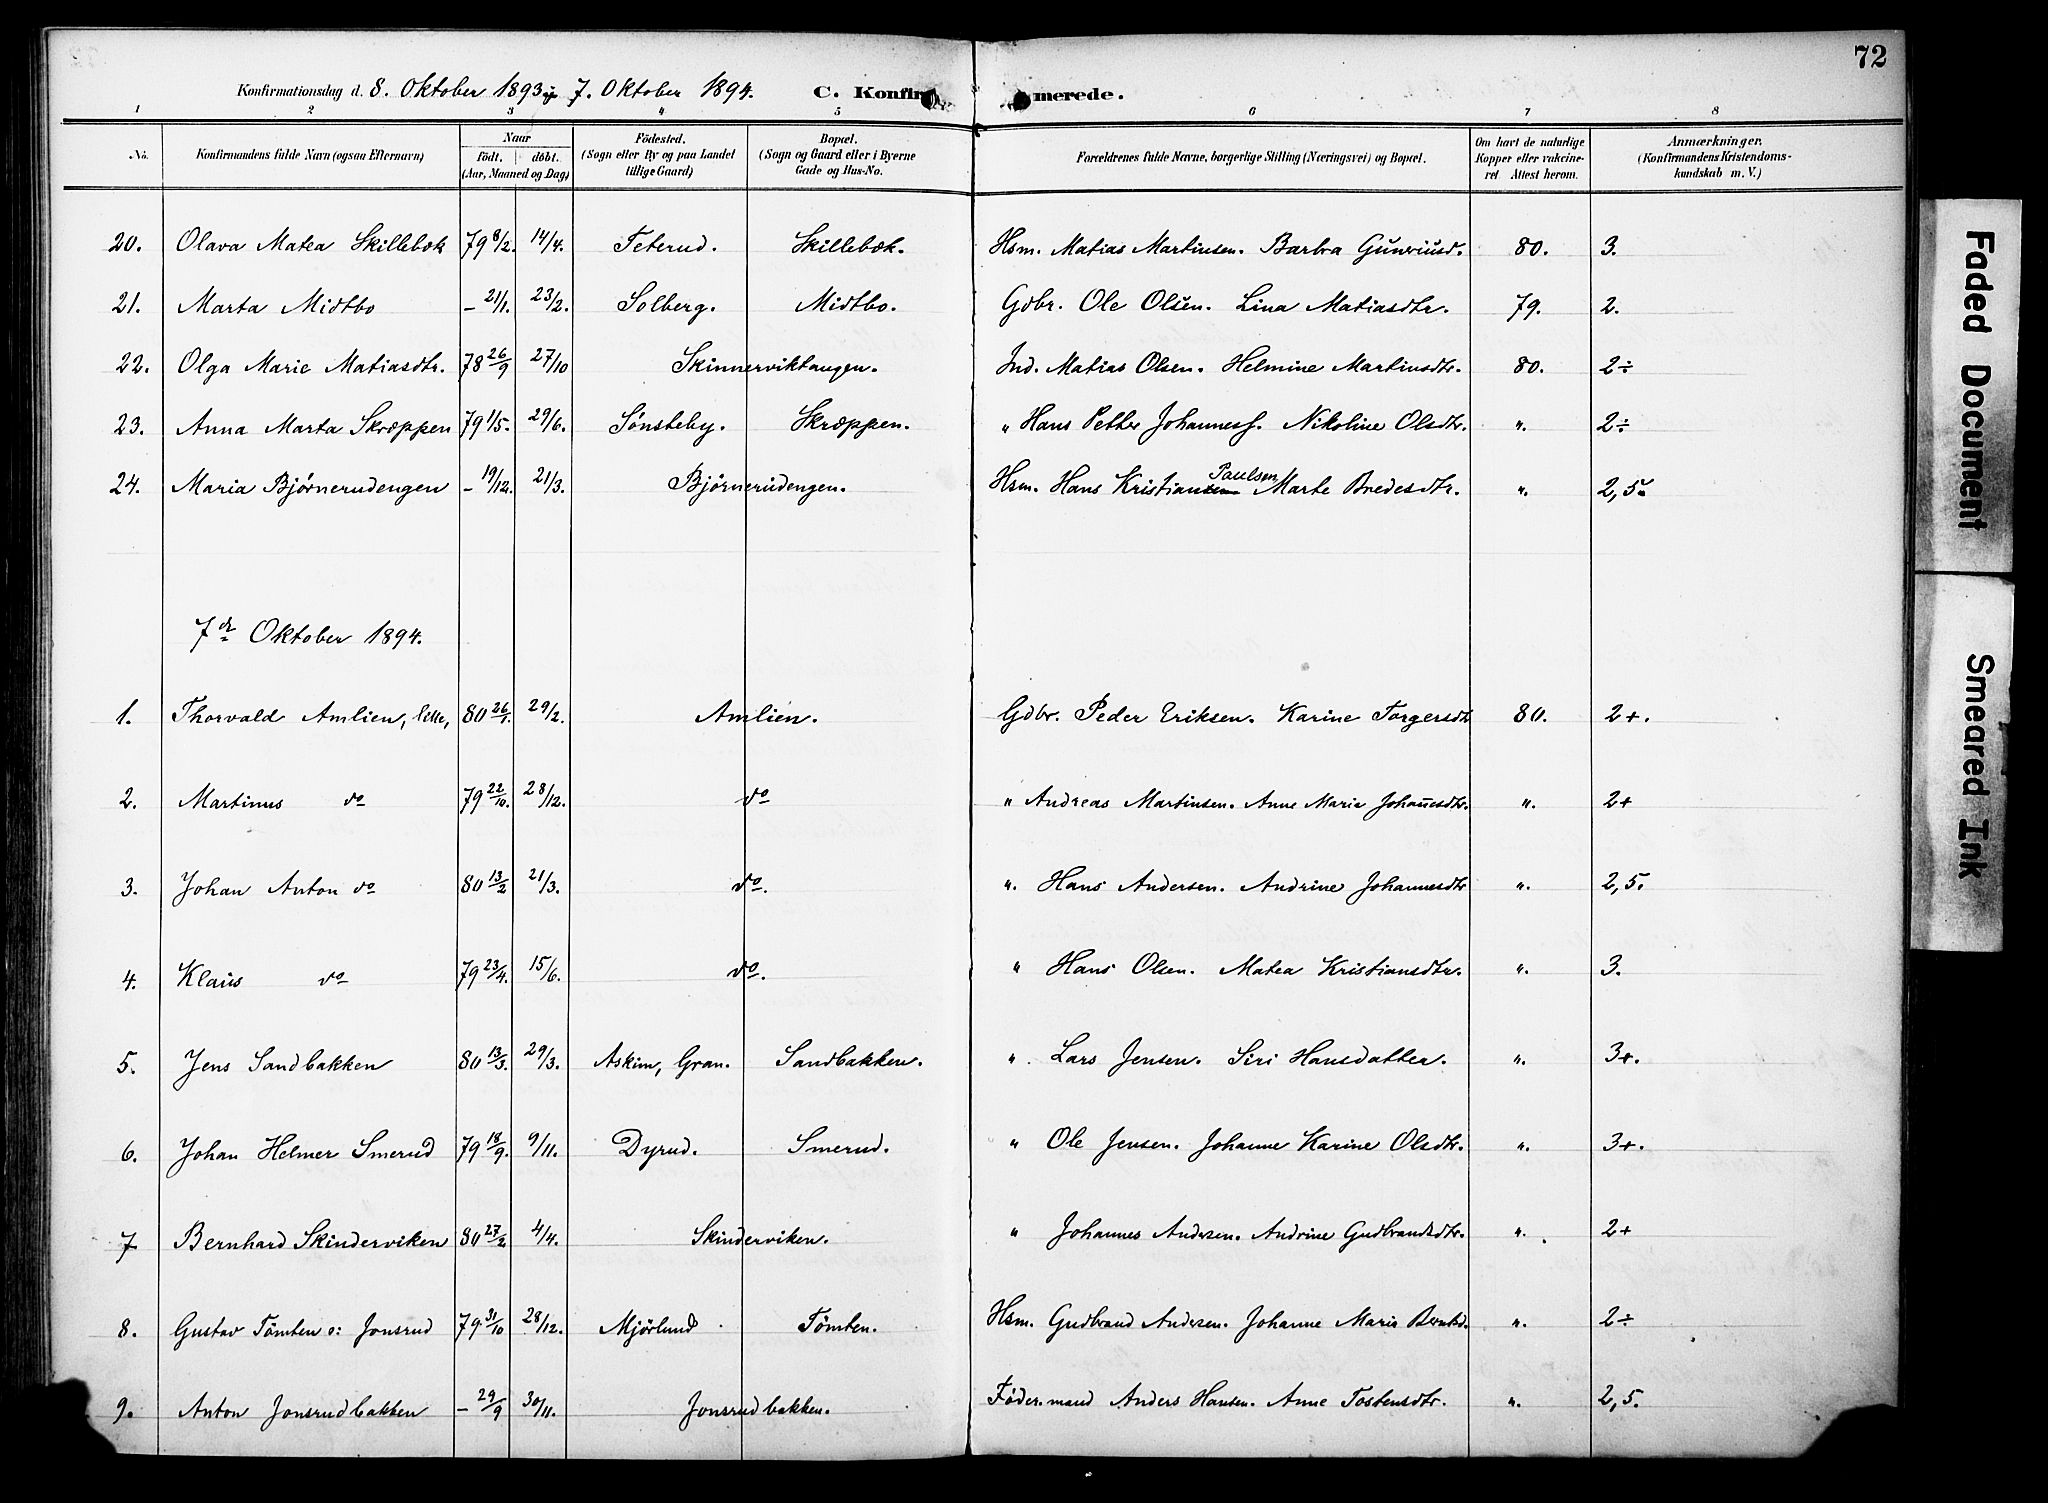 72
Konfirmationsdag d. 8. Oktober 1893 7. Oktober 1894. C. Konfirmerede.
1 2 3 4 5 6 7 8
No. Konfirmandens fulde Navn (ogsaa Efternavn) Naar født. døbt. (Aar, Maaned og Dag) Fødested. (Sogn eller By og paa Landet tillige Gaard) Bopæl. (Sogn og Gaard eller i Byerne Gade og Hus-No. Forældrenes fulde Navne, borgerlige Stilling (Næringsvei) og Bopæl. Om havt de naturlige Kopper eller vakcineret Attest herom. Anmærkninger. (Konfirmandens Kristendomskundskab m. V.)
20. Olava Matea Skillebæk 79 8/2. 14/4. Teterud. Skillebæk. Hsm. Matias Martinsen. Barbra 80. 3.
21. Marta Midtbo – 21/1. 23/2. Solberg. Midtbo. Gdbr. Ole Olsen. Lina Matiasdtr. 79. 2.
22. Olga Marie Matiasdtr. 78 26/9 27/10 Skinnerviktangen. Ind. Matias Olsen. Helmine Martinsdtr. 80. 2÷
23. Anna Marta Skræppen 79 1/5. 29/6. Sønsteby. Skræppen. " Hans Petter Johanness. Nikoline Olsdtr. ". 2÷
24. Maria Bjørnerudengen – 19/12. 21/3. Bjørnerudengen. Hsm. Hans Kristiansen Paulsen Marte Bredesdtr. ". 2,5.
7de Oktober 1894.
1. Thorvald Amlien, lille, 80 26/1. 29/2. Amlien. Gdbr. Peder Eriksen. Karine Torgersdt 80. 2+.
2. Martinus do 79 22/10. 28/12. do " Andreas Martinsen. Anne Marie Johañesdtr. ". 2+
3. Johan Anton do 80 13/2 21/3. do. ". Hans Andersen. Andrine Johannesdtr ". 2,5.
4. Klaus do 79 23/4. 15/6. do. " Hans Olsen. Matea Kristiansdtr. ". 3.
5. Jens Sandbakken 80 13/3. 29/3. Askim, Gran. Sandbakken. " Lars Jensen. Siri Hansdatter. ". 3+.
6. Johan Helmer Smerud 79 18/9. 9/11. Dyrud. Smerud. " Ole Jensen. Johanne Karine Olsdtr. ". 3+.
7 Bernhard Skinderviken 80 27/2 4/4. Skinderviken. " Johannes Andersen. Andrine Gudbrandsdtr. ". 2+
8. Gustav Tømten o: Jonsrud 79 31/10 28/12. Mjørlund Tømten. Hsm. Gudbrand Andersen. Johanne Marie ". 2÷
9. Anton Jonsrudbakken – 29/9 30/11. Jonsrudbakken. Føder.mand Anders Hansen. Anne Tostensdtr. ". 2,5.
Faded Document
Smeared Ink